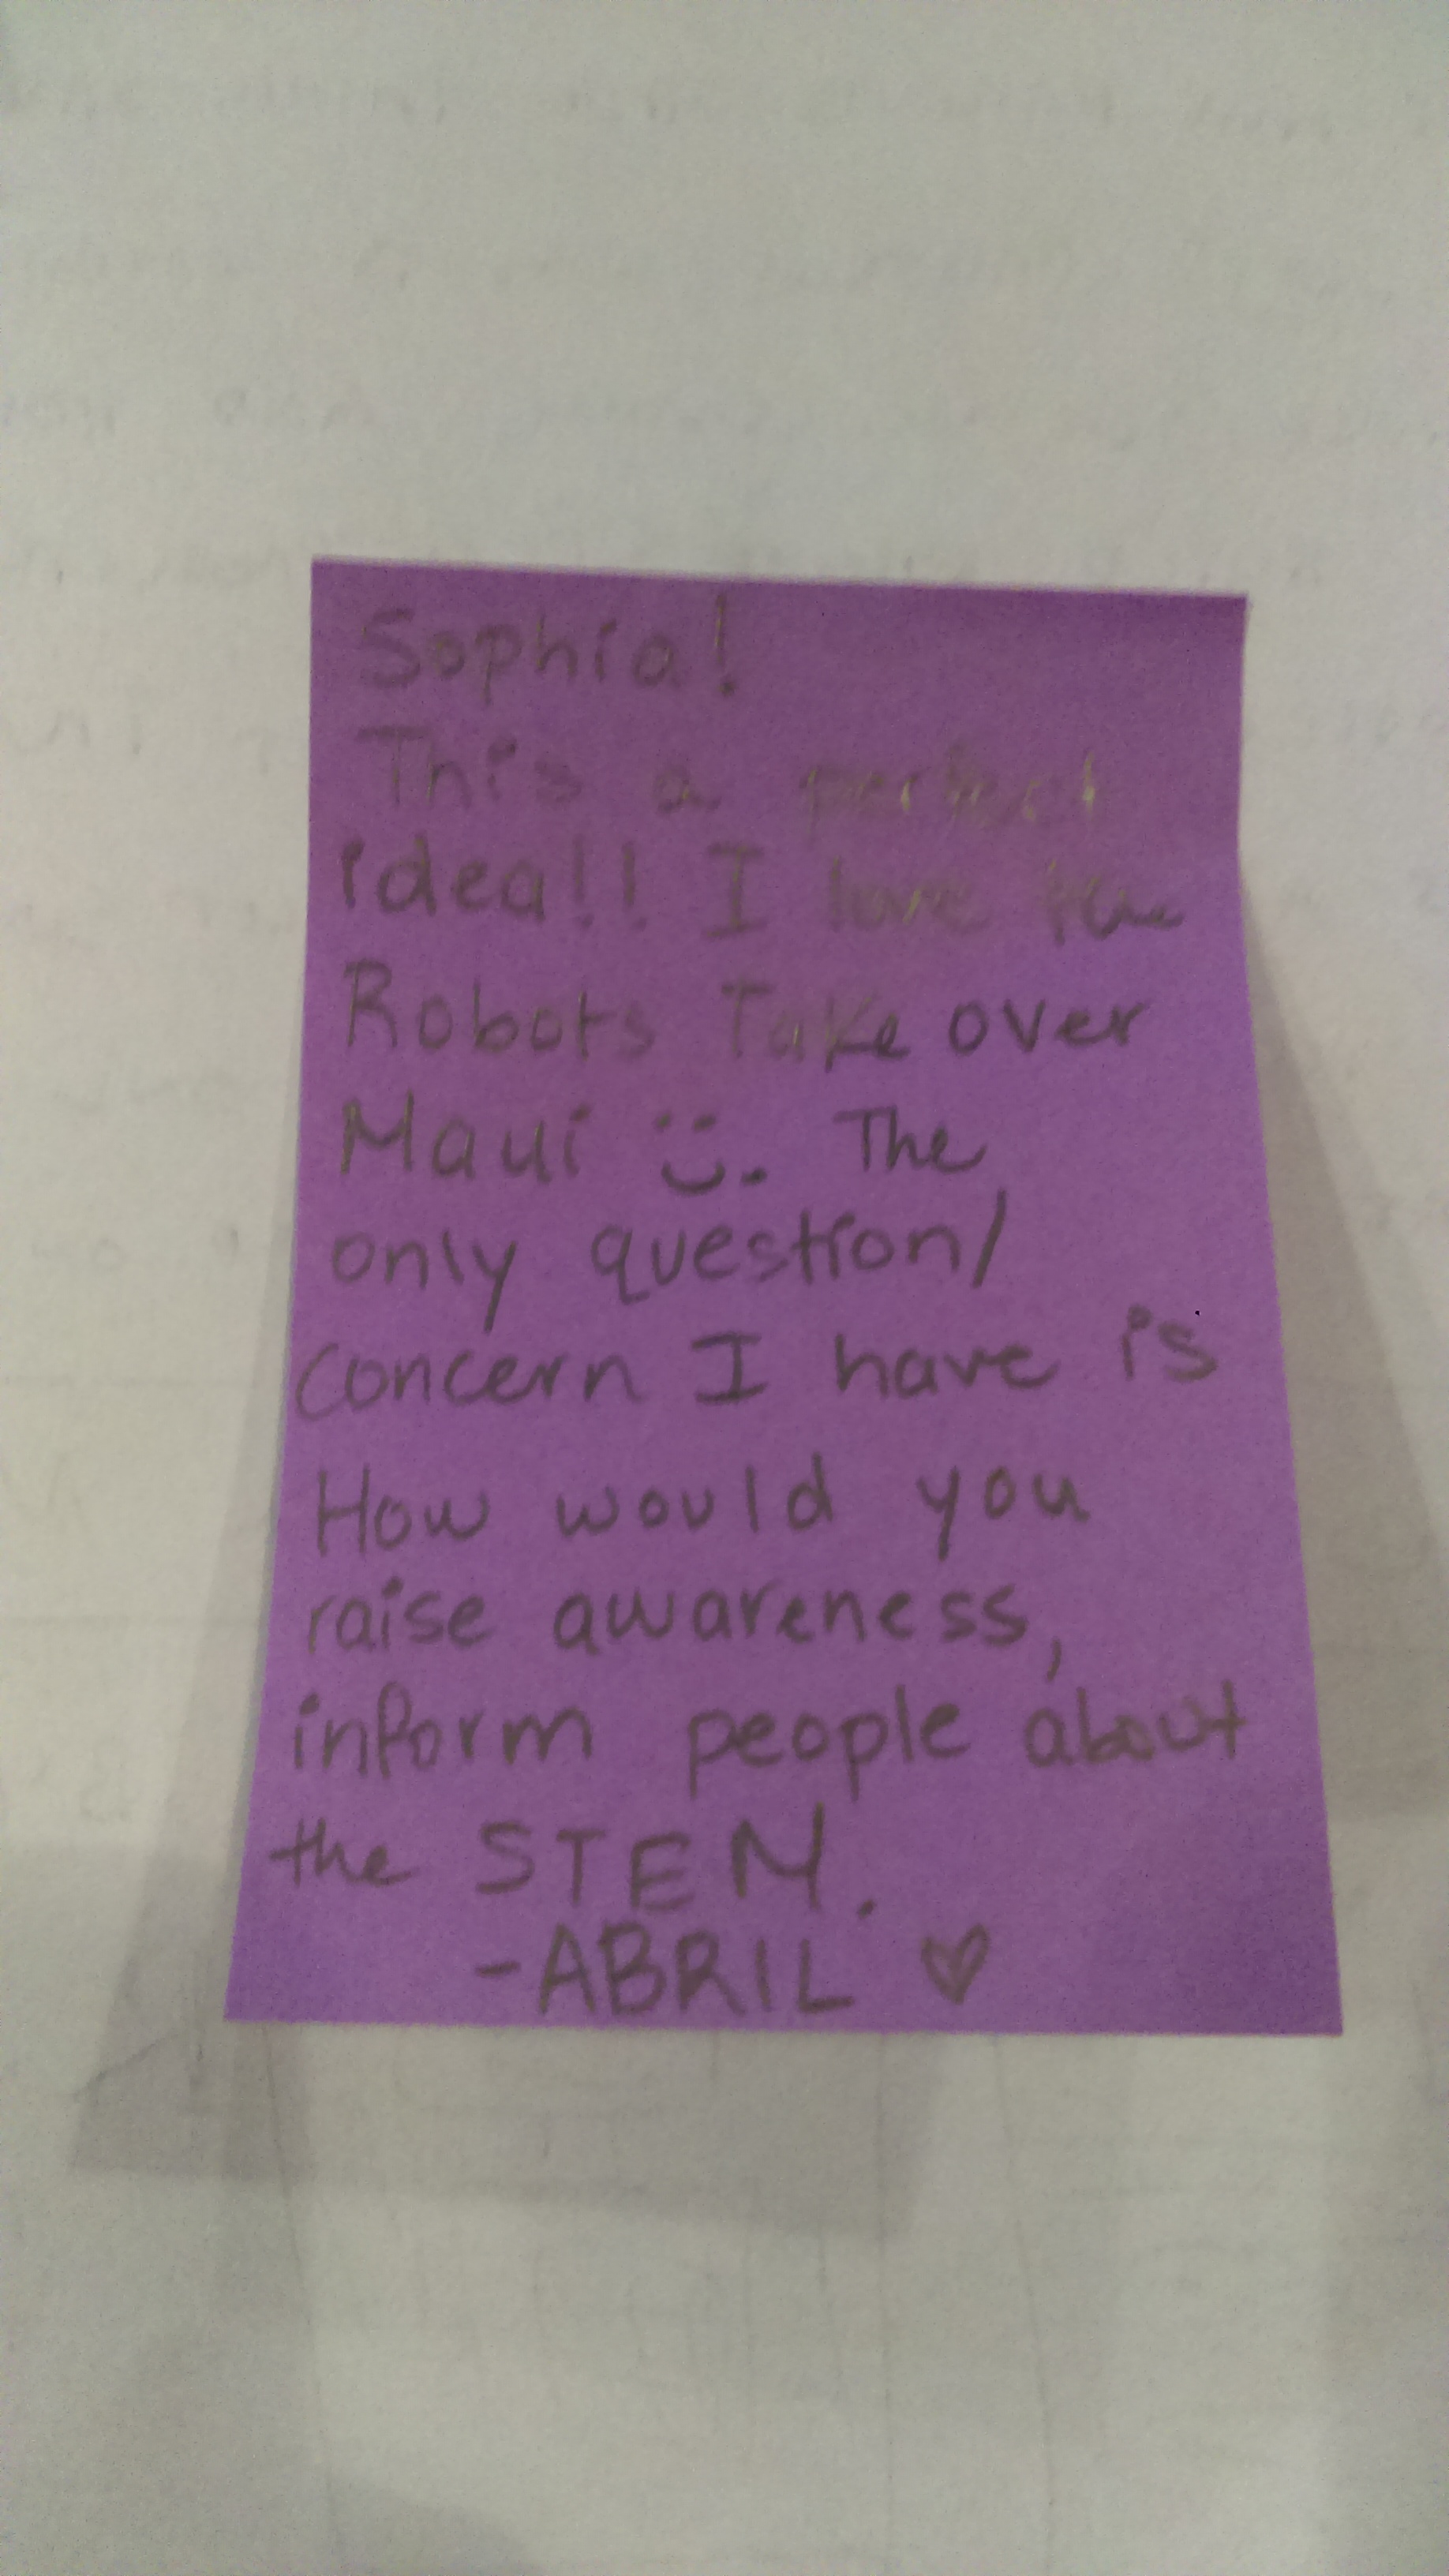 Sophia!
This a perfect
idea!! I love the
Robots Take over
Maui :). The
only question/
concern I have is
How would you
raise awareness,
inform people about
the STEM.
-ABRIL ♡